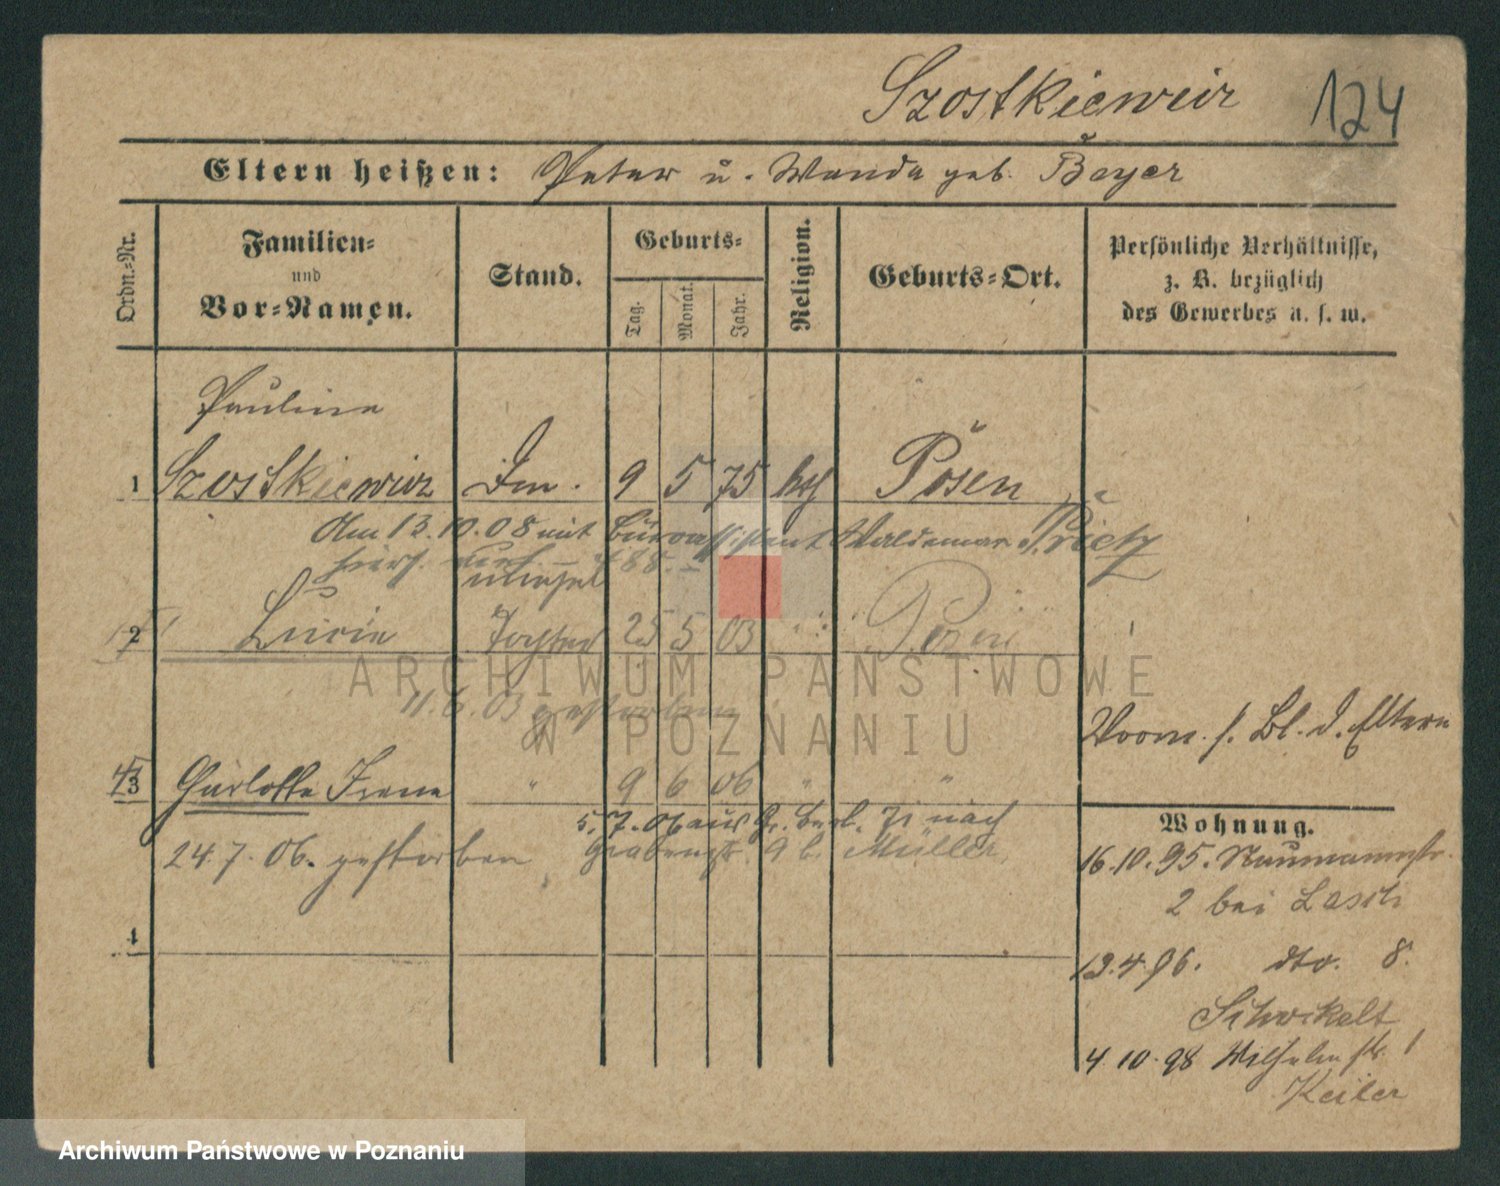 Szostkiewicz
124
Eltern heißen: Peter u. Wanda geb. Beyer
Ordn.-Nr.
Familien-
und
Vor-Namen.
Stand.
Geburts-
Tag.
Monat.
Jahr.
Religion.
Geburts-Ort.
Persönliche Verhältnisse,
z. B. bezüglich
des Gewerbes u. s. w.
Pauline
1 Szostkiewicz 9 5 75 kth Posen
Am 13.10.08 mit Büroassistent Waldemar Prietz
unehel
2 Lucie Tochter 25 5 03 " " Posen
11.6.03 gestorben
Vorm. s. Bl. d. Eltern
3 Charlotte Irene " 9 6 06 " "
5.7.06 aus Gr. Berl. 71 nach
24.7.06. gestorben Grabenstr. 9 b. Müller
4
Wohnung.
16.10.95. Naumannstr.
2 bei Lasch
13.4.96. dto. 8.
4.10.98 Wilhelmstr. 1
Keiler
ARCHIWUM PAŃSTWOWE
W POZNANIU
Archiwum Państwowe w Poznaniu